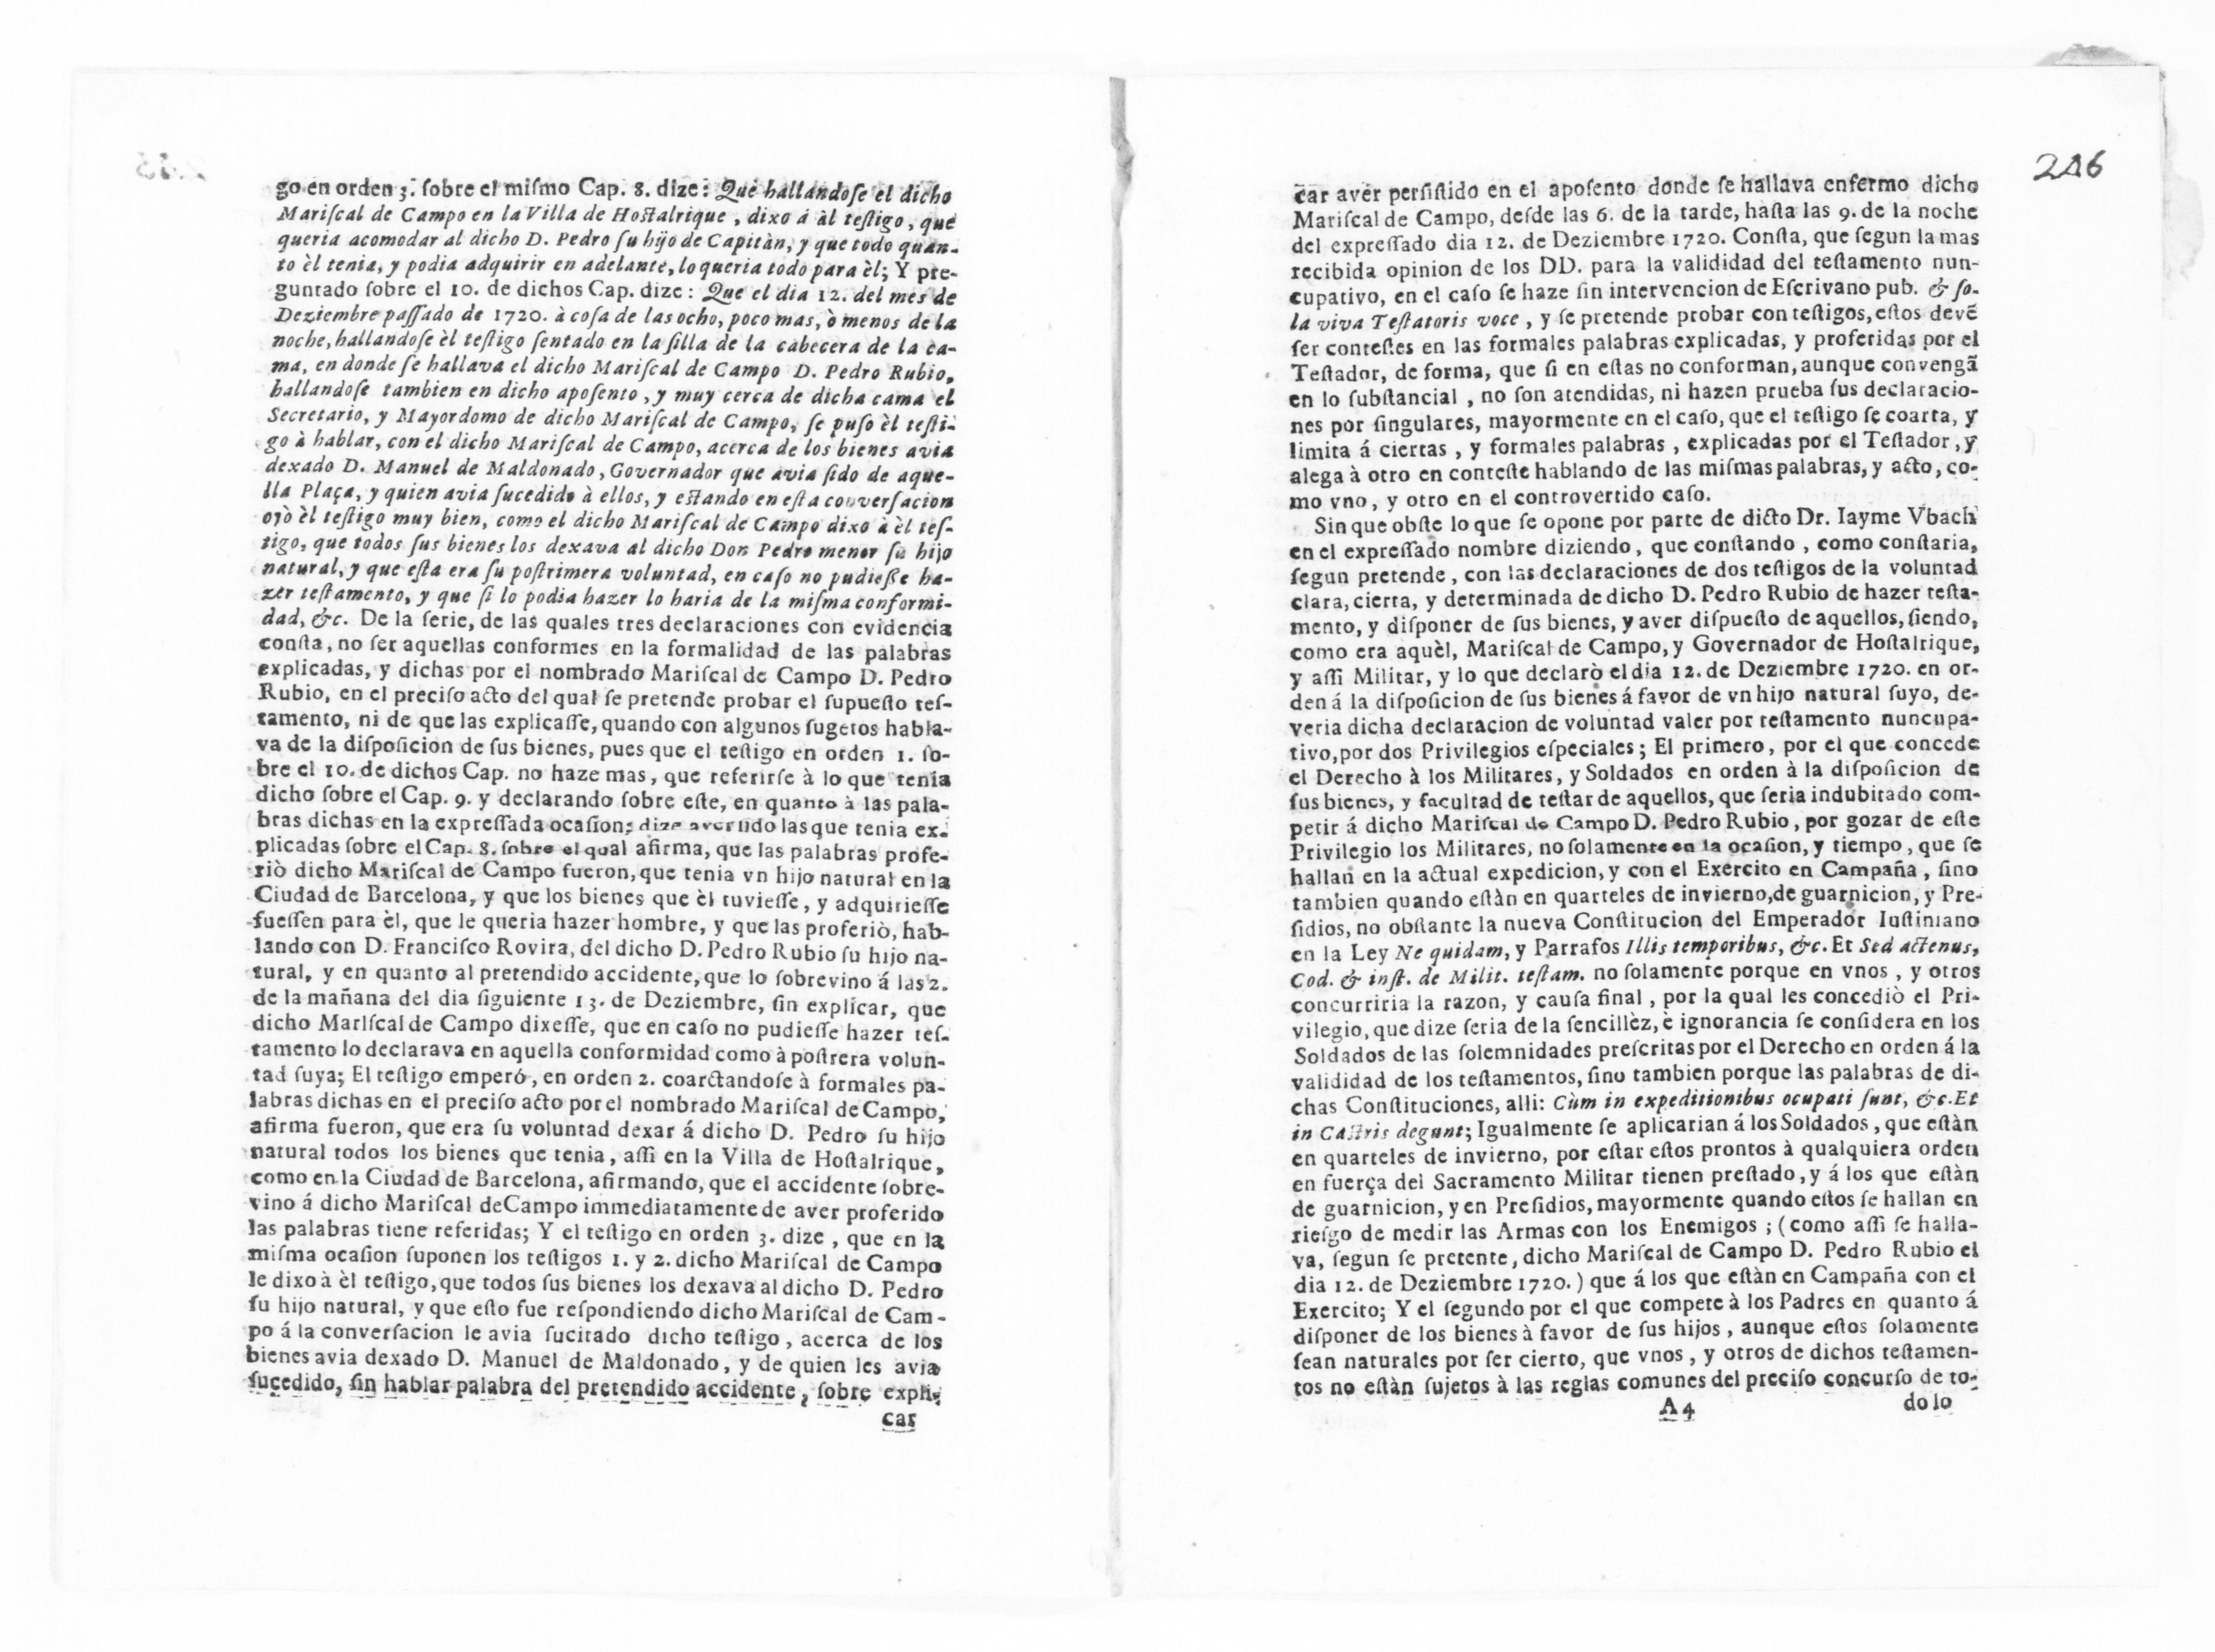 go en orden 3. ſobre el miſmo Cap. 8. dize: Que hallandoſe el dicho
Mariſcal de Campo en la Villa de Hoſtalrique, dixo á àl teſtigo, que
queria acomodar al dicho D. Pedro ſu hijo de Capitàn, y que todo quan-
to èl tenia, y podia adquirir en adelante, lo queria todo para èl; Y pre-
guntado ſobre el 10. de dichos Cap. dize: Que el dia 12. del mes de
Deziembre paſſado de 1720. à coſa de las ocho, poco mas, ò menos de la
noche, hallandoſe èl teſtigo ſentado en la ſilla de la cabecera de la ca-
ma, en donde ſe hallava el dicho Mariſcal de Campo D. Pedro Rubio,
hallandoſe tambien en dicho apoſento, y muy cerca de dicha cama el
Secretario, y Mayordomo de dicho Mariſcal de Campo, ſe puſo èl teſti-
go à hablar, con el dicho Mariſcal de Campo, acerca de los bienes avia
dexado D. Manuel de Maldonado, Governador que avia ſido de aque-
lla Plaça, y quien avia ſucedido à ellos, y eſtando en eſta converſacion
oyò èl teſtigo muy bien, como el dicho Mariſcal de Campo dixo à èl teſ-
tigo, que todos ſus bienes los dexava al dicho Don Pedro menor ſu hijo
natural, y que eſta era ſu poſtrimera voluntad, en caſo no pudieſſe ha-
zer teſtamento, y que ſi lo podia hazer lo haria de la miſma conformi-
dad, &c. De la ſerie, de las quales tres declaraciones con evidencia
conſta, no ſer aquellas conformes en la formalidad de las palabras
explicadas, y dichas por el nombrado Mariſcal de Campo D. Pedro
Rubio, en el preciſo acto del qual ſe pretende probar el ſupueſto teſ-
tamento, ni de que las explicaſſe, quando con algunos ſugetos habla-
va de la diſpoſicion de ſus bienes, pues que el teſtigo en orden 1. ſo-
bre el 10. de dichos Cap. no haze mas, que referirſe à lo que tenia
dicho ſobre el Cap. 9. y declarando ſobre eſte, en quanto à las pala-
bras dichas en la expreſſada ocaſion; dize avertido las que tenia ex-
plicadas ſobre el Cap. 8. ſobre el qual afirma, que las palabras profe-
riò dicho Mariſcal de Campo fueron, que tenia vn hijo natural en la
Ciudad de Barcelona, y que los bienes que èl tuvieſſe, y adquirieſſe
fueſſen para èl, que le queria hazer hombre, y que las proferiò, hab-
lando con D. Franciſco Rovira, del dicho D. Pedro Rubio ſu hijo na-
tural, y en quanto al pretendido accidente, que lo ſobrevino á las 2.
de la mañana del dia ſiguiente 13. de Deziembre, ſin explicar, que
dicho Mariſcal de Campo dixeſſe, que en caſo no pudieſſe hazer teſ-
tamento lo declarava en aquella conformidad como à poſtrera volun-
tad ſuya; El teſtigo emperó, en orden 2. coarctandoſe à formales pa-
labras dichas en el preciſo acto por el nombrado Mariſcal de Campo,
afirma fueron, que era ſu voluntad dexar á dicho D. Pedro ſu hijo
natural todos los bienes que tenia, aſſi en la Villa de Hoſtalrique,
como en la Ciudad de Barcelona, afirmando, que el accidente ſobre-
vino á dicho Mariſcal de Campo immediatamente de aver proferido
las palabras tiene referidas; Y el teſtigo en orden 3. dize, que en la
miſma ocaſion ſuponen los teſtigos 1. y 2. dicho Mariſcal de Campo
le dixo à èl teſtigo, que todos ſus bienes los dexava al dicho D. Pedro
ſu hijo natural, y que eſto fue reſpondiendo dicho Mariſcal de Cam-
po á la converſacion le avia ſucitado dicho teſtigo, acerca de los
bienes avia dexado D. Manuel de Maldonado, y de quien les avia
ſucedido, ſin hablar palabra del pretendido accidente, ſobre expli-
car
246
car aver perſiſtido en el apoſento donde ſe hallava enfermo dicho
Mariſcal de Campo, deſde las 6. de la tarde, haſta las 9. de la noche
del expreſſado dia 12. de Deziembre 1720. Conſta, que ſegun la mas
recibida opinion de los DD. para la valididad del teſtamento nun-
cupativo, en el caſo ſe haze ſin intervencion de Eſcrivano pub. & ſo-
la viva Teſtatoris voce, y ſe pretende probar con teſtigos, eſtos devẽ
ſer conteſtes en las formales palabras explicadas, y proferidas por el
Teſtador, de forma, que ſi en eſtas no conforman, aunque convengã
en lo ſubſtancial, no ſon atendidas, ni hazen prueba ſus declaracio-
nes por ſingulares, mayormente en el caſo, que el teſtigo ſe coarta, y
limita á ciertas, y formales palabras, explicadas por el Teſtador, y
alega à otro en conteſte hablando de las miſmas palabras, y acto, co-
mo vno, y otro en el controvertido caſo.
Sin que obſte lo que ſe opone por parte de dicto Dr. Iayme Vbach
en el expreſſado nombre diziendo, que conſtando, como conſtaria,
ſegun pretende, con las declaraciones de dos teſtigos de la voluntad
clara, cierta, y determinada de dicho D. Pedro Rubio de hazer teſta-
mento, y diſponer de ſus bienes, y aver diſpueſto de aquellos, ſiendo,
como era aquèl, Mariſcal de Campo, y Governador de Hoſtalrique,
y aſſi Militar, y lo que declarò el dia 12. de Deziembre 1720. en or-
den á la diſpoſicion de ſus bienes á favor de vn hijo natural ſuyo, de-
veria dicha declaracion de voluntad valer por teſtamento nuncupa-
tivo, por dos Privilegios eſpeciales; El primero, por el que concede
el Derecho à los Militares, y Soldados en orden à la diſpoſicion de
ſus bienes, y facultad de teſtar de aquellos, que ſeria indubitado com-
petir á dicho Mariſcal de Campo D. Pedro Rubio, por gozar de eſte
Privilegio los Militares, no ſolamente en la ocaſion, y tiempo, que ſe
hallan en la actual expedicion, y con el Exercito en Campaña, ſino
tambien quando eſtàn en quarteles de invierno, de guarnicion, y Pre-
ſidios, no obſtante la nueva Conſtitucion del Emperador Iuſtiniano
en la Ley Ne quidam, y Parrafos Illis temporibus, &c. Et Sed actenus,
Cod. & inſt. de Milit. teſtam. no ſolamente porque en vnos, y otros
concurriria la razon, y cauſa final, por la qual les concediò el Pri-
vilegio, que dize ſeria de la ſencillèz, è ignorancia ſe conſidera en los
Soldados de las ſolemnidades preſcritas por el Derecho en orden á la
valididad de los teſtamentos, ſino tambien porque las palabras de di-
chas Conſtituciones, alli: Cùm in expeditionibus ocupati ſunt, &c. Et
in Caſtris degunt; Igualmente ſe aplicarian á los Soldados, que eſtàn
en quarteles de invierno, por eſtar eſtos prontos à qualquiera orden
en fuerça del Sacramento Militar tienen preſtado, y á los que eſtàn
de guarnicion, y en Preſidios, mayormente quando eſtos ſe hallan en
rieſgo de medir las Armas con los Enemigos; (como aſſi ſe halla-
va, ſegun ſe pretente, dicho Mariſcal de Campo D. Pedro Rubio el
dia 12. de Deziembre 1720.) que á los que eſtàn en Campaña con el
Exercito; Y el ſegundo por el que compete à los Padres en quanto á
diſponer de los bienes à favor de ſus hijos, aunque eſtos ſolamente
ſean naturales por ſer cierto, que vnos, y otros de dichos teſtamen-
tos no eſtàn ſujetos à las reglas comunes del preciſo concurſo de to-
A 4 do lo